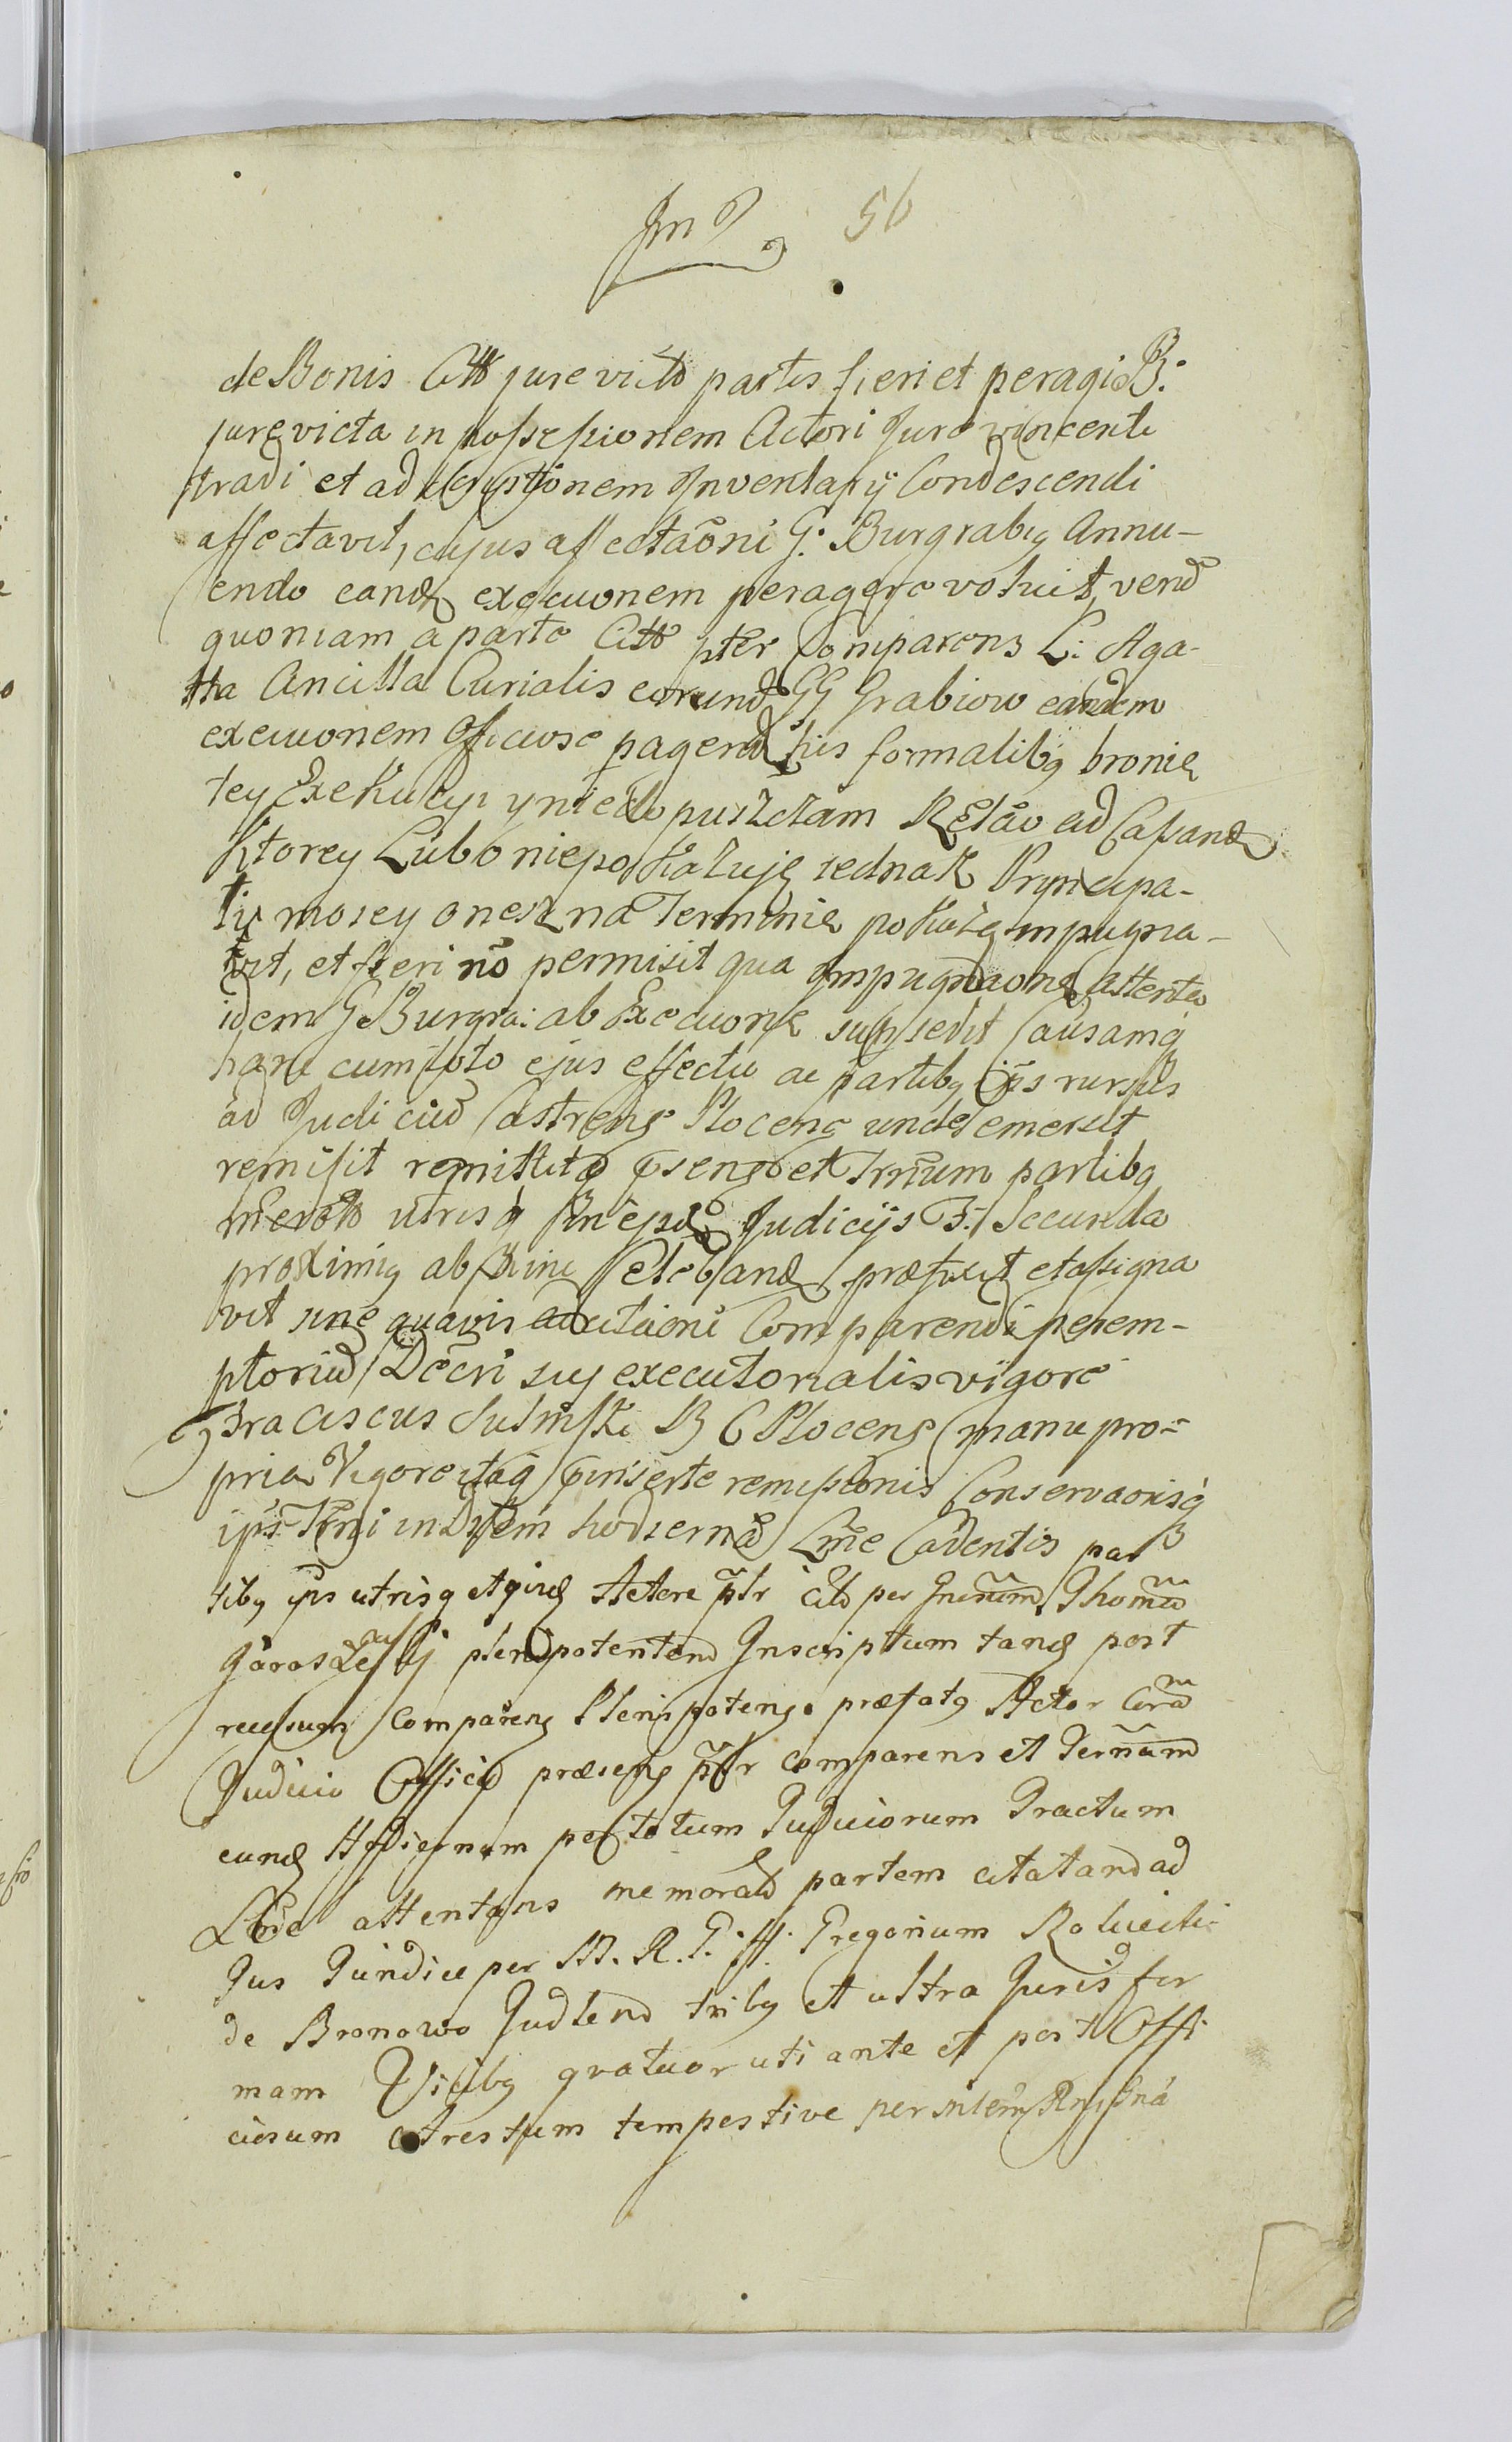 56
de Bonis Citt jure victo partis fieri et peragi B:
jure victa in possessionem Actori Jure vincenti
tradi et ad Conscriptionem Inventarij Condescendi
affectavit, cujus affectaoni G: Burgrabig Annu-
endo eand execuonem peragere voluit, verũ
quoniam a parte Citt pter Comparens L: Aga-
tha Ancilla Curialis eorund GG Grabiow eandem
execuonem Officiose pagend his formalibg bronię
tey Exekucyi y nie dopuszczam Relão ad Cassand
Ktorey Lubo niepokazuię iednak Pryncypa-
ły mosey onesz na Terminie pokażą impugna-
vit, et fieri nõ permisit qua impugnaone attenta
idem G Burgra: ab Execuone supersedit Causamq
hanc cum toto ejus effectu ac partibg ips rursus
ad Judiciũ Castrens Plocens unde emersit
remisit remittitq psengo et Trnum partibg
utrisq Judicijs F: Secunda
proximig ab hinc Celebrand præfixit et assigna
vit sine quavis adcitaoni Comparendi perem-
ptoriũ Decri suy executorialis vigore
Franciscus Sulinski B C Plocens manu pro-
pria Vigore itaq pinserte remissionis Conservaonisq
ips Trni in Diem hodiernã Lme Cadentis par
tibg ips utrisq Actore ptr Citt per Thomã
plenipotentem Inscriptum tanq post
recessum Comparens Plenipotengo præfatg Actor Corã
Judicio Officiũ præsens ptr comparens et Ternum
eund Hodiernum per totum Judiciorum Tractum
Lme attentans memorat partem citatand ad
Jus Juridice per M. R. P: H. Gregorium Roluicki
de Bronowo Judlend tribg et ultra Juris fir
mam Vicibg quatuor uti ante et post Offi
ciosum Arrestum tempestive per